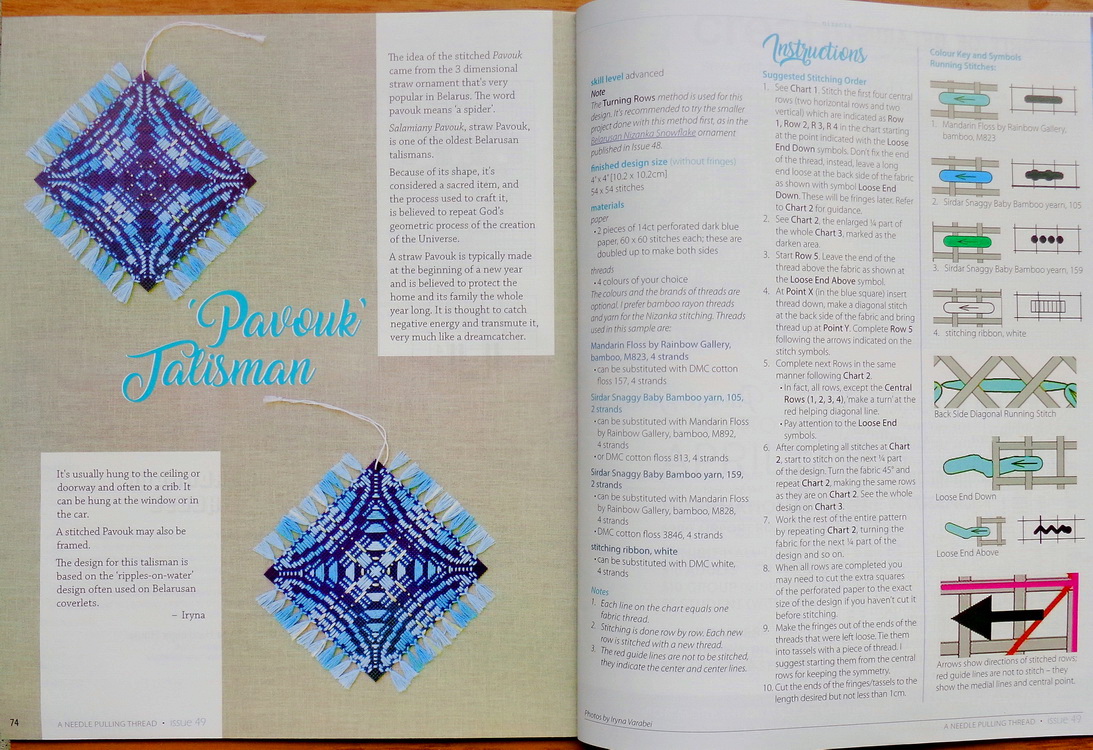 The idea of the stitched Pavouk
came from the 3 dimensional
straw ornament that's very
popular in Belarus. The word
pavouk means 'a spider'.
Salamiany Pavouk, straw Pavouk,
is one of the oldest Belarusan
talismans.
Because of its shape, it's
considered a sacred item, and
the process used to craft it,
is believed to repeat God's
geometric process of the creation
of the Universe.
A straw Pavouk is typically made
at the beginning of a new year
and is believed to protect the
home and its family the whole
year long. It is thought to catch
negative energy and transmute it,
very much like a dreamcatcher.
'Pavouk'
Talisman
It's usually hung to the ceiling or
doorway and often to a crib. It
can be hung at the window or in
the car.
A stitched Pavouk may also be
framed.
The design for this talisman is
based on the 'ripples-on-water'
design often used on Belarusan
coverlets.
– Iryna
74
A NEEDLE PULLING THREAD • issue 49
skill level advanced
Note
The Turning Rows method is used for this
design. It's recommended to try the smaller
project done with this method first, as in the
Belarusan Nizanka Snowflake ornament
published in Issue 48.
finished design size (without fringes)
4" x 4" [10.2 x 10.2cm]
54 x 54 stitches
materials
paper
• 2 pieces of 14ct perforated dark blue
paper, 60 x 60 stitches each; these are
doubled up to make both sides
threads
• 4 colours of your choice
The colours and the brands of threads are
optional. I prefer bamboo rayon threads
and yarn for the Nizanka stitching. Threads
used in this sample are:
Mandarin Floss by Rainbow Gallery,
bamboo, M823, 4 strands
• can be substituted with DMC cotton
floss 157, 4 strands
Sirdar Snaggy Baby Bamboo yarn, 105,
2 strands
• can be substituted with Mandarin Floss
by Rainbow Gallery, bamboo, M892,
4 strands
• or DMC cotton floss 813, 4 strands
Sirdar Snaggy Baby Bamboo yarn, 159,
2 strands
• can be substituted with Mandarin Floss
by Rainbow Gallery, bamboo, M828,
4 strands
• DMC cotton floss 3846, 4 strands
stitching ribbon, white
• can be substituted with DMC white,
4 strands
Notes
1. Each line on the chart equals one
fabric thread.
2. Stitching is done row by row. Each new
row is stitched with a new thread.
3. The red guide lines are not to be stitched,
they indicate the center and center lines.
Photos by Iryna Varabei
Instructions
Suggested Stitching Order
1. See Chart 1. Stitch the first four central
rows (two horizontal rows and two
vertical) which are indicated as Row
1, Row 2, R 3, R 4 in the chart starting
at the point indicated with the Loose
End Down symbols. Don't fix the end
of the thread, instead, leave a long
end loose at the back side of the fabric
as shown with symbol Loose End
Down. These will be fringes later. Refer
to Chart 2 for guidance.
2. See Chart 2, the enlarged ¼ part of
the whole Chart 3, marked as the
darken area.
3. Start Row 5. Leave the end of the
thread above the fabric as shown at
the Loose End Above symbol.
4. At Point X (in the blue square) insert
thread down, make a diagonal stitch
at the back side of the fabric and bring
thread up at Point Y. Complete Row 5
following the arrows indicated on the
stitch symbols.
5. Complete next Rows in the same
manner following Chart 2.
• In fact, all rows, except the Central
Rows (1, 2, 3, 4), 'make a turn' at the
red helping diagonal line.
• Pay attention to the Loose End
symbols.
6. After completing all stitches at Chart
2, start to stitch on the next ¼ part
of the design. Turn the fabric 45° and
repeat Chart 2, making the same rows
as they are on Chart 2. See the whole
design on Chart 3.
7. Work the rest of the entire pattern
by repeating Chart 2, turning the
fabric for the next ¼ part of the
design and so on.
8. When all rows are completed you
may need to cut the extra squares
of the perforated paper to the exact
size of the design if you haven't cut it
before stitching.
9. Make the fringes out of the ends of the
threads that were left loose. Tie them
into tassels with a piece of thread. I
suggest starting them from the central
rows for keeping the symmetry.
10. Cut the ends of the fringes/tassels to the
length desired but not less than 1cm.
Colour Key and Symbols
Running Stitches:
1. Mandarin Floss by Rainbow Gallery,
bamboo, M823
2. Sirdar Snaggy Baby Bamboo yearn, 105
3. Sirdar Snaggy Baby Bamboo yearn, 159
4. stitching ribbon, white
Back Side Diagonal Running Stitch
Loose End Down
Loose End Above
Arrows show directions of stitched rows;
red guide lines are not to stitch – they
show the medial lines and central point.
A NEEDLE PULLING THREAD • issue 49